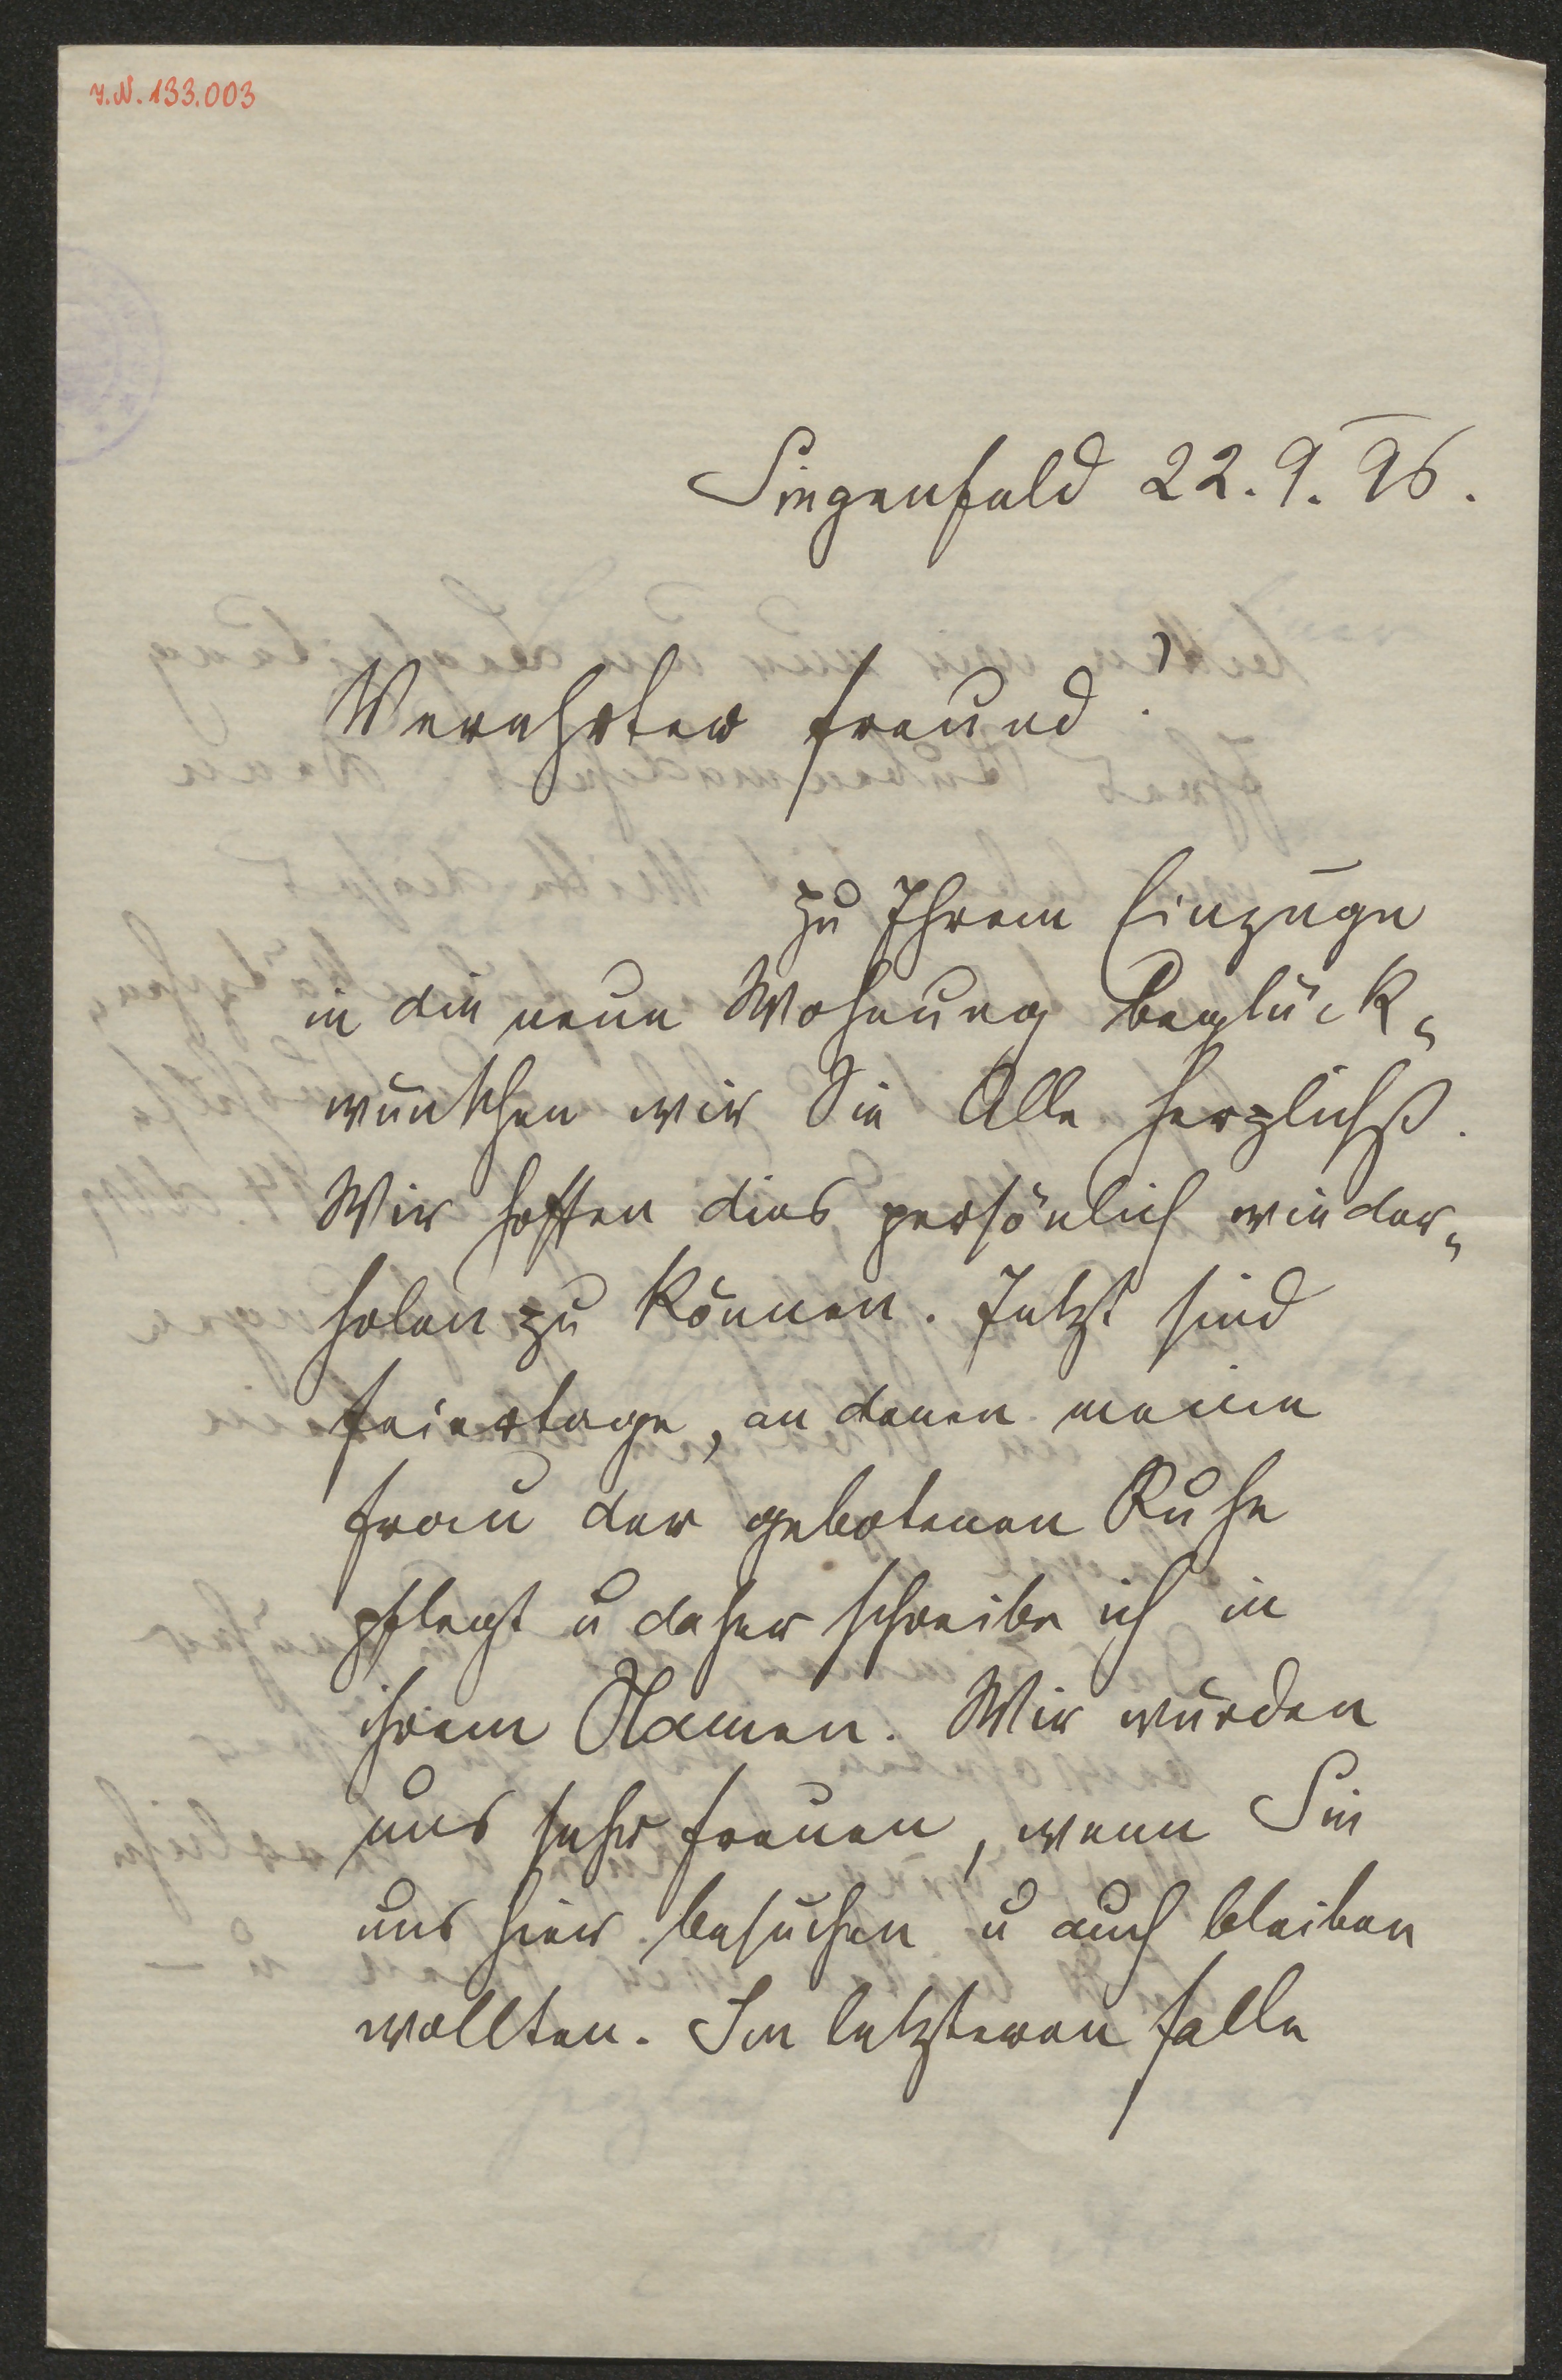 J.N. 133.003
Siegenfeld 22. 9. 96.
Verehrter Freund!
Zu Ihrem Einzuge
in die neue Wohnung beglück-
wünschen wir Sie Alle herzlichst.
Wir hoffen dies persönlich wieder-
holen zu können. Jetzt sind
Feiertage, an denen meine
Frau der gebotenen Ruhe
pflegt u daher schreibe ich in
ihrem Namen. Wir würden
uns sehr freuen, wenn Sie
uns hier besuchen u auch bleiben
wollten. Im letzteren Falle